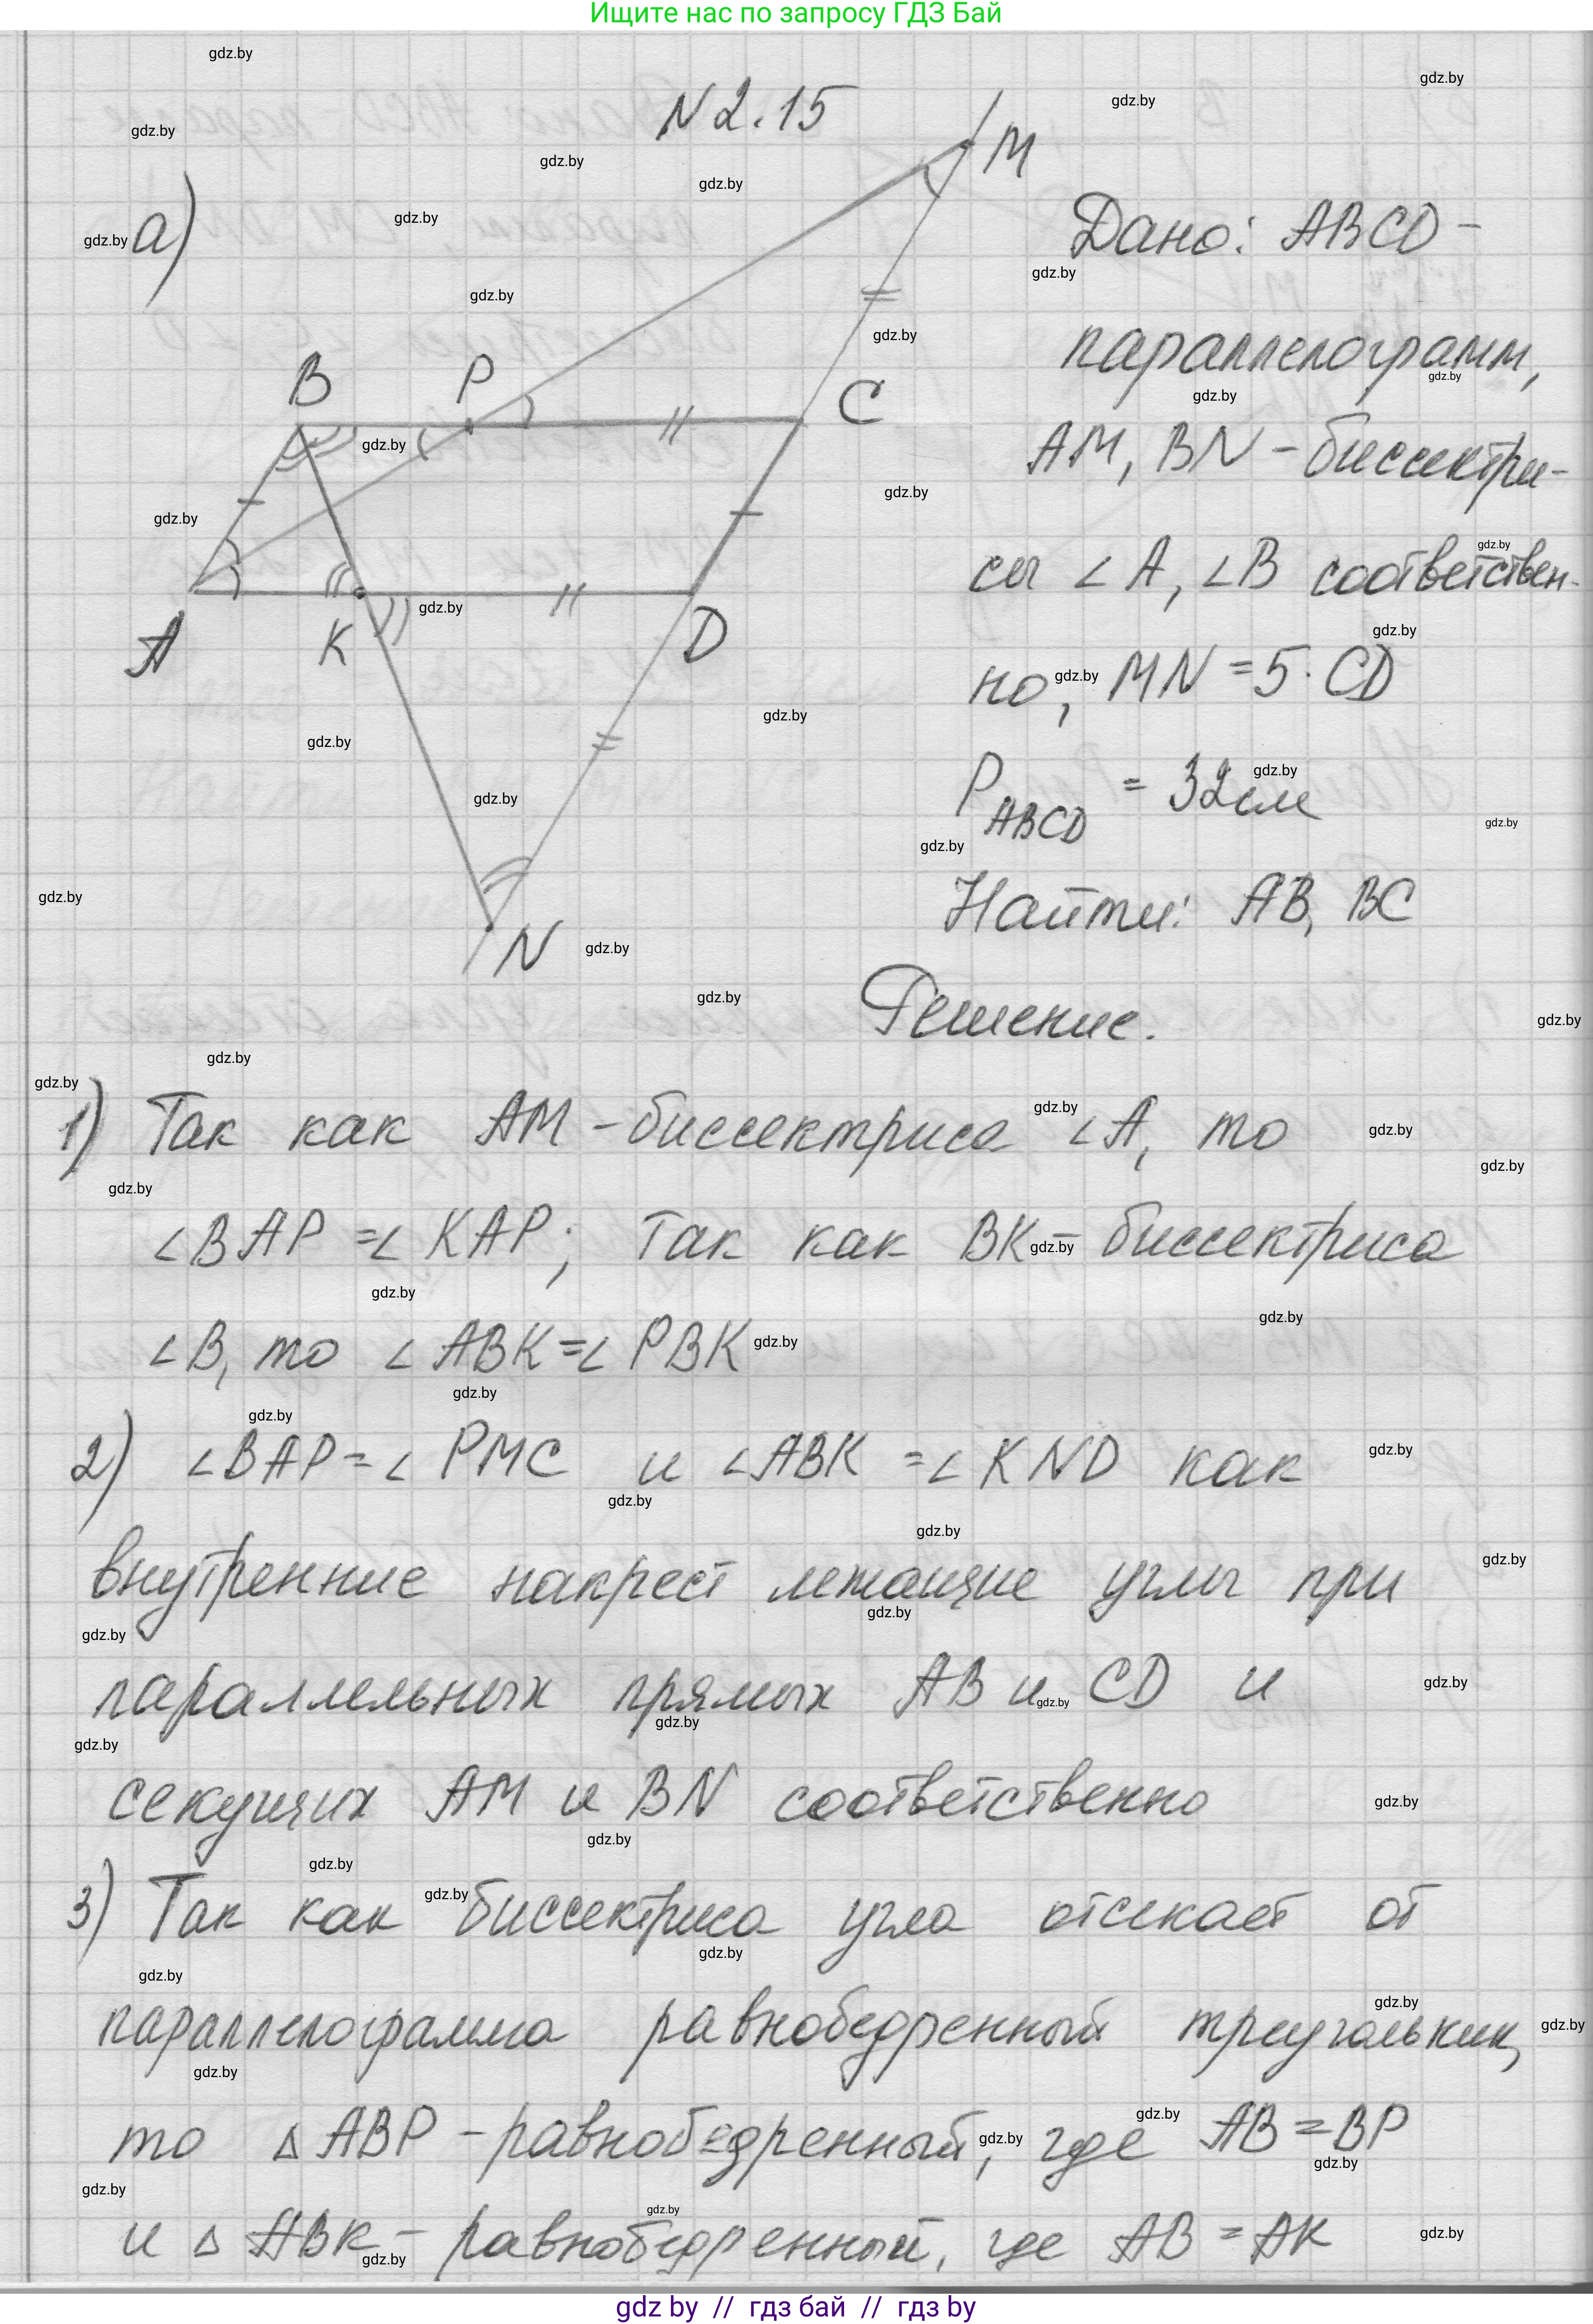 Ищите нас по запросу ГДЗ Бай
N 2.15
а)
M
B
P
C
A
K
D
N
Дано: ABCD -
параллелограмм,
AM, BN - биссектри-
сы ∠A, ∠B соответствен-
но, MN = 5 · CD
P ABCD = 32 см
Найти: AB, BC
Решение.
1) Так как AM - биссектриса ∠A, то
∠BAP = ∠KAP; так как BK - биссектриса
∠B, то ∠ABK = ∠PBK
2) ∠BAP = ∠PMC и ∠ABK = ∠KND как
внутренние накрест лежащие углы при
параллельных прямых AB и CD и
секущих AM и BN соответственно
3) Так как биссектриса угла отсекает от
параллелограмма равнобедренный треугольник,
то △ABP - равнобедренный, где AB = BP
и △ABK - равнобедренный, где AB = AK
gdz by // гдз бай // гдз by